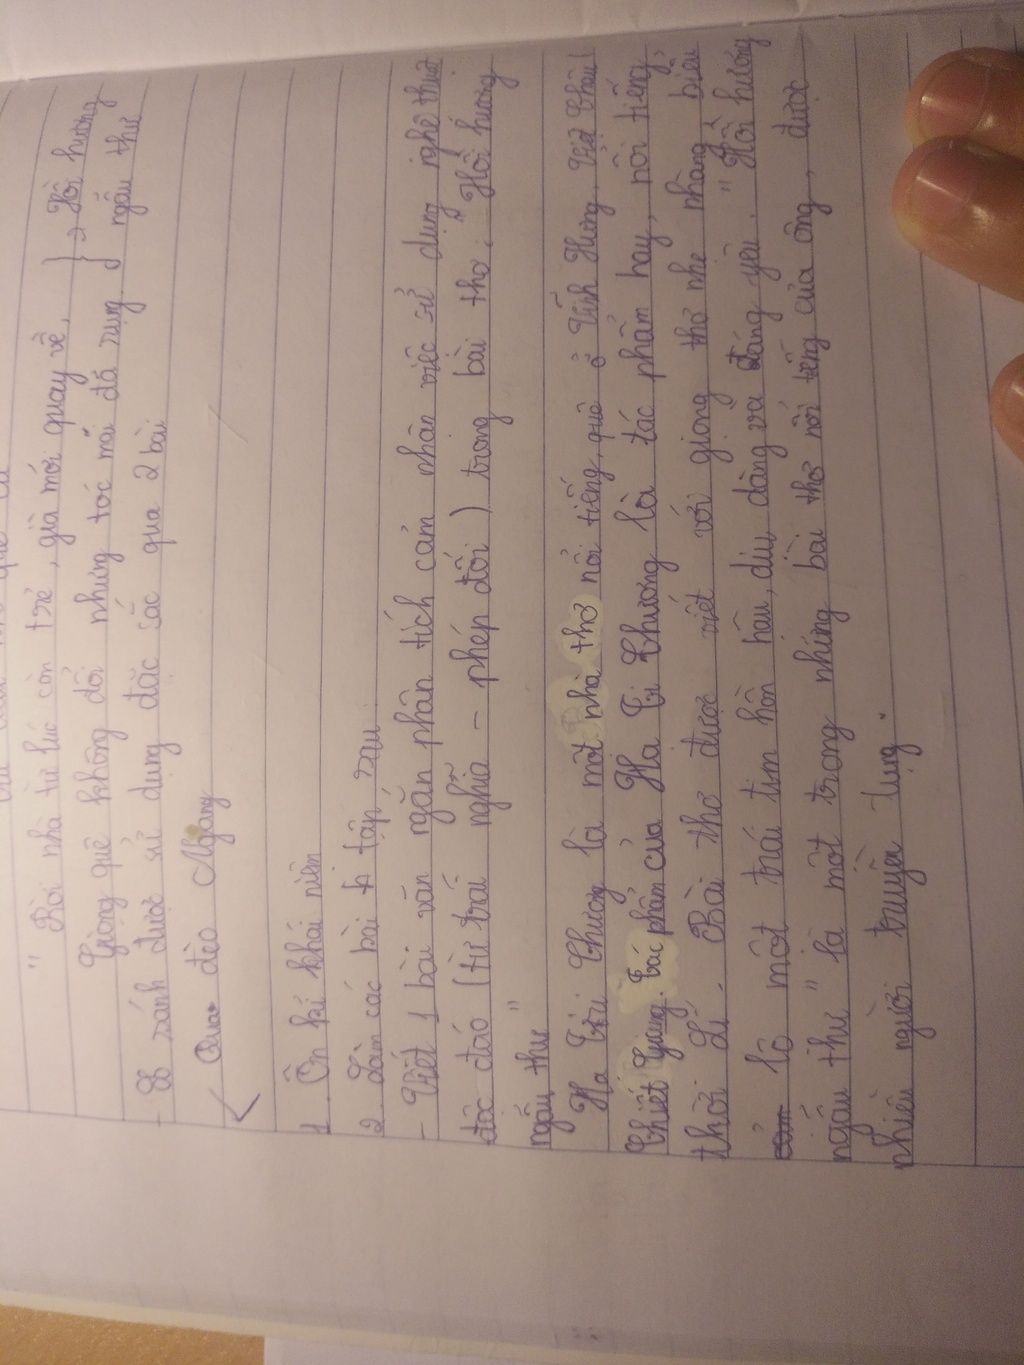 " Rời nhà từ lúc còn trẻ, già mới quay về, } → Hồi hương
Giọng quê không đổi nhưng tóc mai đã rụng. } ngẫu thư
- So sánh được sử dụng đặc sắc qua 2 bài
Qua đèo Ngang
1. Ôn kĩ khái niệm
2. Làm các bài tập sau
- Viết 1 bài văn ngắn phân tích cảm nhận việc sử dụng nghệ thuật
độc đáo (từ trái nghĩa - phép đối) trong bài thơ: " Hồi hương
ngẫu thư "
Hạ Tri Chương là một nhà thơ nổi tiếng, quê ở Vĩnh Hưng, Việt Châu
Chiết Giang. Tác phẩm của Hạ Tri Chương là tác phẩm hay, nổi tiếng
thời . Bài thơ được viết với giọng thơ nhẹ nhàng biểu
lộ một trái tim hồn hậu, dịu dàng và đáng yêu. " Hồi hương
ngẫu thư " là một trong những bài thơ nổi tiếng của ông, được
nhiều người truyền tụng.